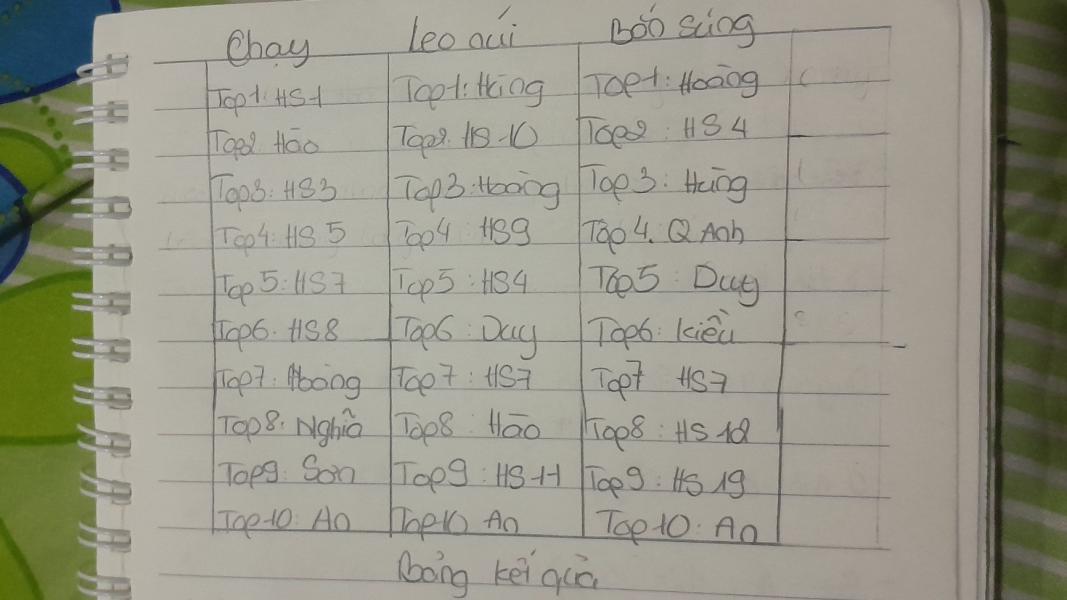 Chạy Leo núi Bắn súng
Top1: HS1 Top1: Hùng Top1: Hoàng
Top2 Hào Top2: HS 10 Top2: HS4
Top3: HS3 Top3: Hoàng Top3: Hùng
Top4: HS 5 Top4 HS9 Top 4. Q Anh
Top 5: HS7 Top5: HS4 Top5: Duy
Top6: HS8 Top6: Duy Top6: Kiều
Top7: Hoàng Top7: HS7 Top7 HS7
Top8: Nghĩa Top8: Hào Top8: HS 12
Top9: Sơn Top9: HS 11 Top9: HS 19
Top10: An Top10 An Top10: An
Bảng kết quả